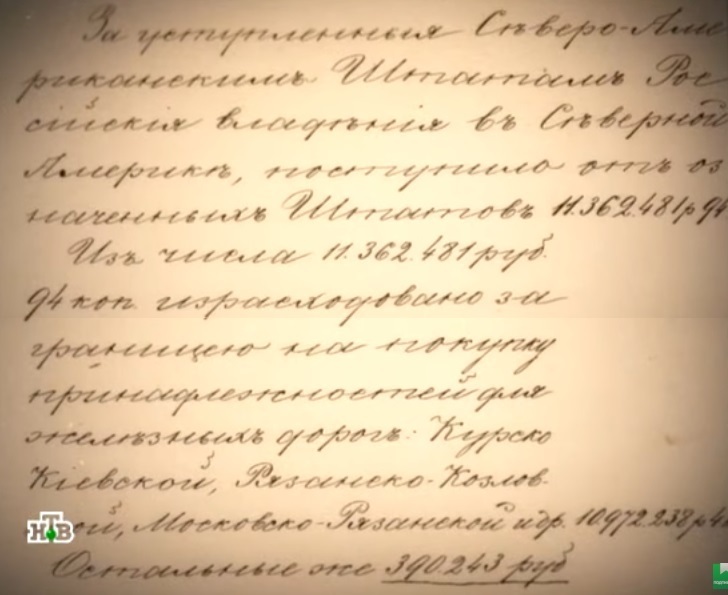 За уступленныя Сѣверо-Аме
риканскимъ Штатамъ Рос
сійскія владѣнія въ Сѣверной
Америкѣ, поступило отъ оз
наченныхъ Штатовъ 11.362.481 р 94
Изъ числа 11.362.481 руб.
94 коп. израсходовано за
границею на покупку
принадлежностей для
желѣзныхъ дорогъ: Курско
Кіевской, Рязанско-Козлов-
ой, Московско-Рязанской и др. 10.972.238 р 4
Остальные же 390.243 руб
НТВ